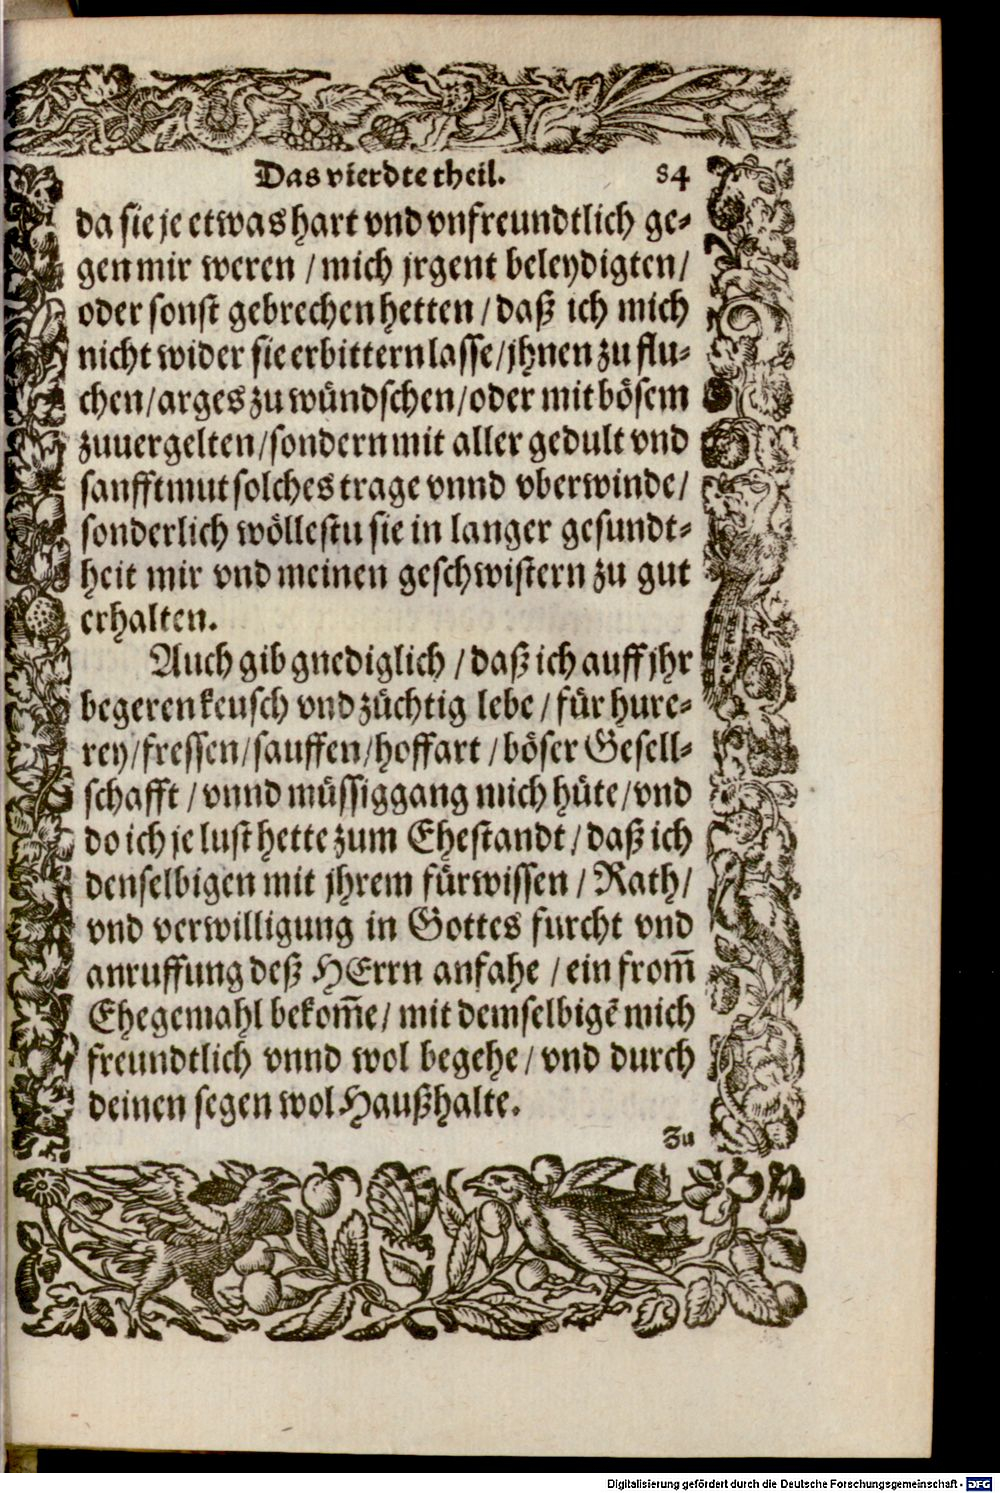 Das vierdte theil. 84
da sie je etwas hart vnd vnfreundtlich ge-
gen mir weren / mich jrgent beleydigten /
oder sonst gebrechen hetten / daß ich mich
nicht wider sie erbittern lasse / jhnen zu flu-
chen / arges zu wündschen / oder mit bösem
zuuergelten / sondern mit aller gedult vnd
sanfftmut solches trage vnnd vberwinde /
sonderlich wöllestu sie in langer gesundt-
heit mir vnd meinen geschwistern zu gut
erhalten.
Auch gib gnediglich / daß ich auff jhr
begeren keusch vnd züchtig lebe / für hure-
rey / fressen / sauffen / hoffart / böser Gesell-
schafft / vnnd müssiggang mich hüte / vnd
do ich je lust hette zum Ehestandt / daß ich
denselbigen mit jhrem fürwissen / Rath /
vnd verwilligung in Gottes furcht vnd
anruffung deß HErrn anfahe / ein from̃
Ehegemahl bekom̃e / mit demselbigẽ mich
freundtlich vnnd wol begehe / vnd durch
deinen segen wol Haußhalte.
Zu
Digitalisierung gefördert durch die Deutsche Forschungsgemeinschaft - DFG